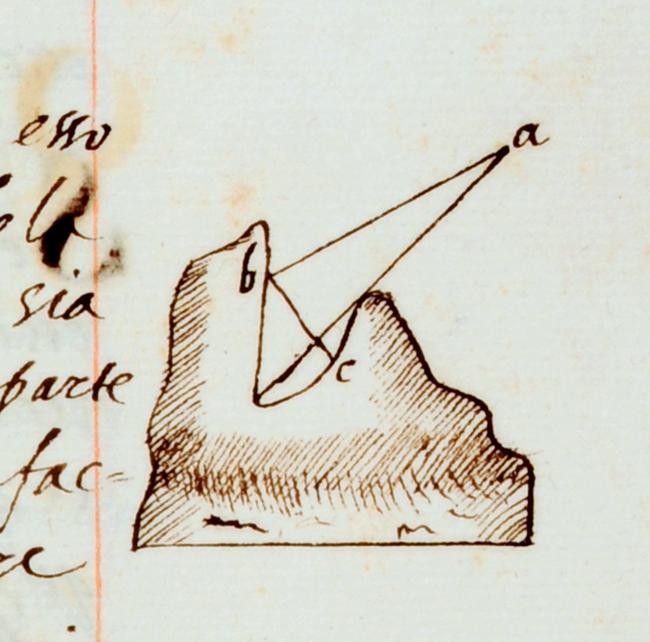 esso
la
sia
parte
fac=
re
a
b
c